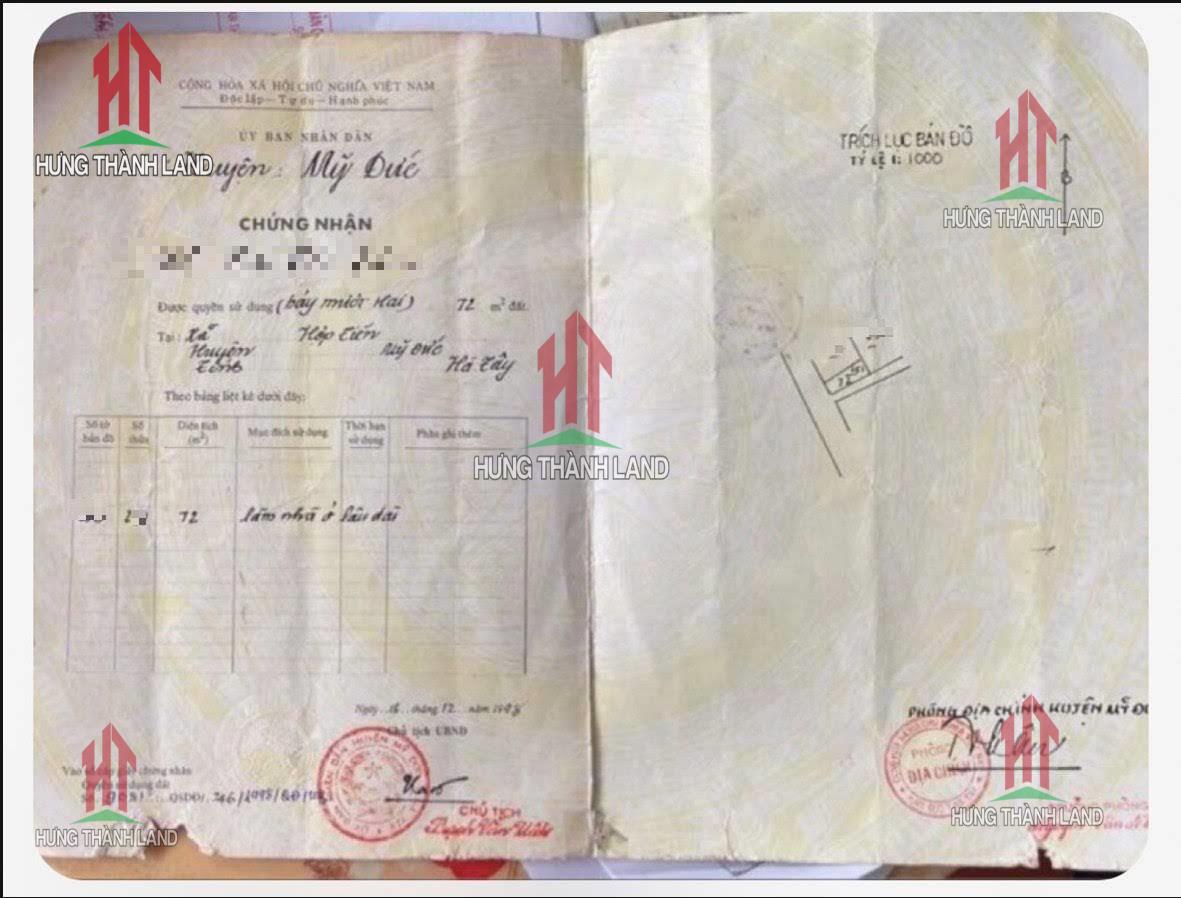 CỘNG HÒA XÃ HỘI CHỦ NGHĨA VIỆT NAM
Độc lập - Tự do - Hạnh phúc
ỦY BAN NHÂN DÂN
Huyện: Mỹ Đức
CHỨNG NHẬN
Được quyền sử dụng (bảy mươi hai) 72 m² đất.
Tại: Xã Hợp Tiến
Huyện Mỹ Đức
Tỉnh Hà Tây
Theo bảng liệt kê dưới đây:
Số tờ bản đồ Số thửa Diện tích (m²) Mục đích sử dụng Thời hạn sử dụng Phần ghi thêm
72 làm nhà ở lâu dài
Ngày tháng 12 năm
Chủ tịch UBND
Vào sổ cấp giấy chứng nhận
Quyền sử dụng đất
Số QSDĐ/
CHỦ TỊCH
TRÍCH LỤC BẢN ĐỒ
TỶ LỆ 1:1000
B
72
PHÒNG ĐỊA CHÍNH HUYỆN MỸ
PHÒNG
ĐỊA CHÍNH
HT
HƯNG THÀNH LAND
HT
HƯNG THÀNH LAND
HT
HƯNG THÀNH LAND
HT
HƯNG THÀNH LAND
HT
HƯNG THÀNH LAND